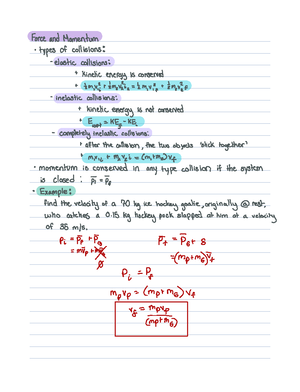 Force and Momentum
· types of collisions:
- elastic collisions:
* kinetic energy is conserved
* ½m₁v₁ᵢ² + ½m₂v₂ᵢ² = ½m₁v₁f² + ½m₂v₂f²
- inelastic collisions:
* kinetic energy is not conserved
* = KEf - KEi
- completely inelastic collisions:
* after the collision, the two objects "stick together"
* m₁v₁i + m₂v₂i = (m₁+m₂)vf
· momentum is conserved in any type collision if the system
is closed : p̄i = p̄f
· Example:
find the velocity of a 70 kg ice hockey goalie, originally @ rest,
who catches a 0.15 kg hockey puck slapped at him at a velocity
of 35 m/s.
Pi = Pf
mpvp = (mp+mG)vf
vf = mpvp / (mp+mG)